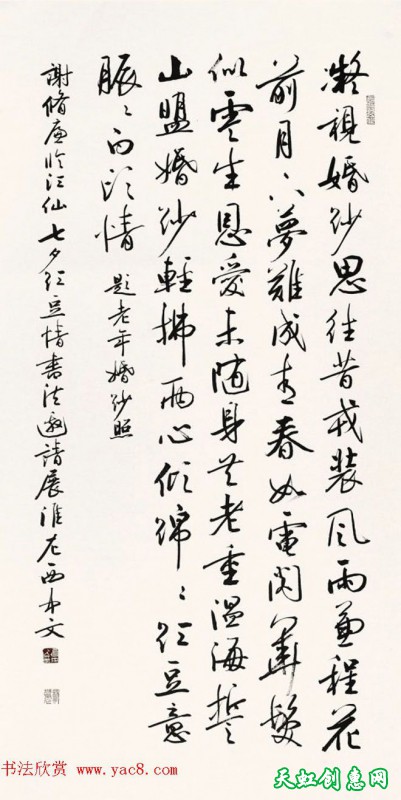 凝視婚紗思往昔戎裝風雨兼程花
前月下夢難成青春如電閃華髮
似雲生恩愛未隨身共老重溫海誓
山盟婚紗輕拂兩心傾綿〻紅豆意
脈〻白頭情 題老年婚紗照
臨江仙 七夕紅豆情書法邀請展 淮左
书法欣赏 www.yac8.com
天虹创惠网